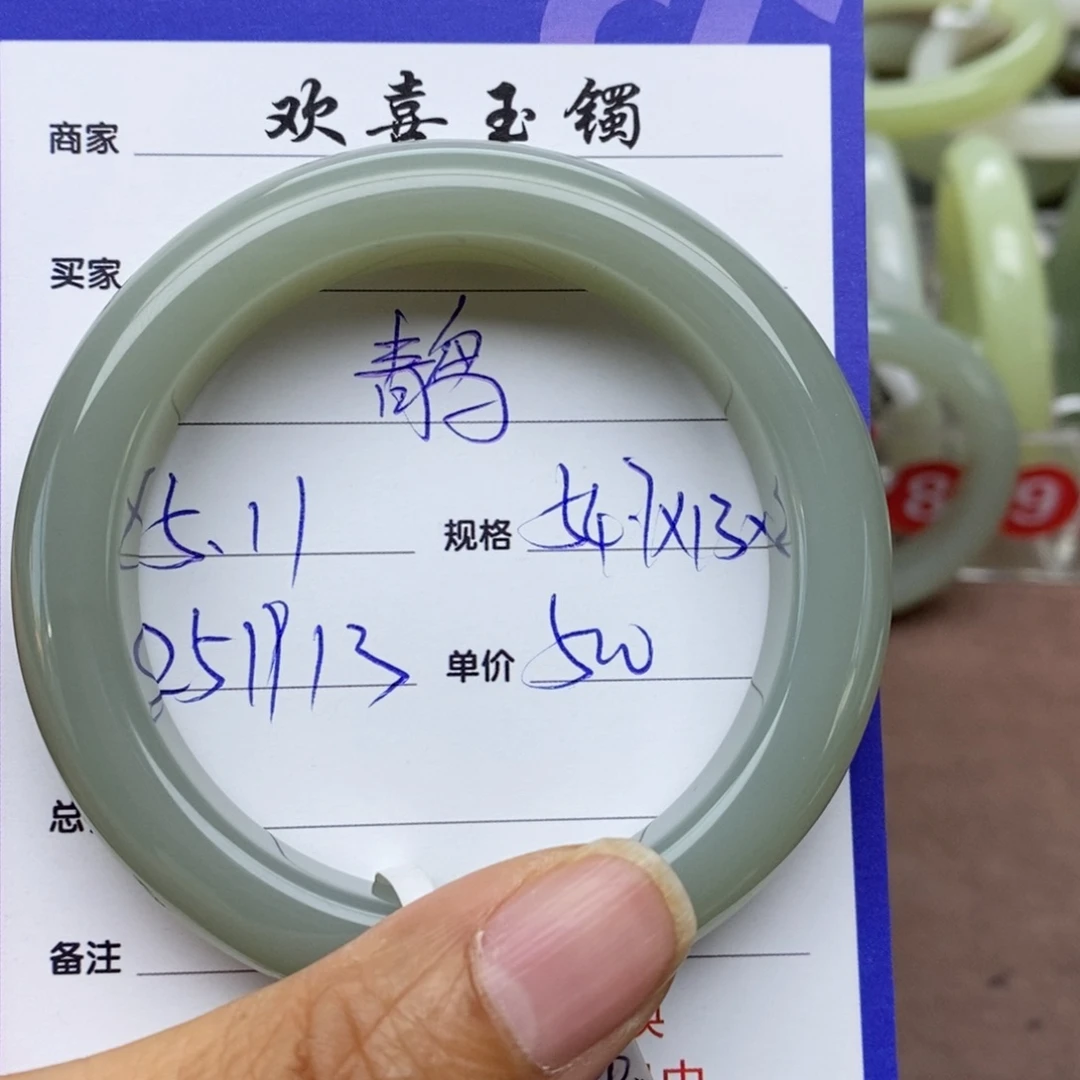 商家 欢喜玉镯
买家
青
5.11 规格 54.7x13x
单价 500
总
备注
8 9
中